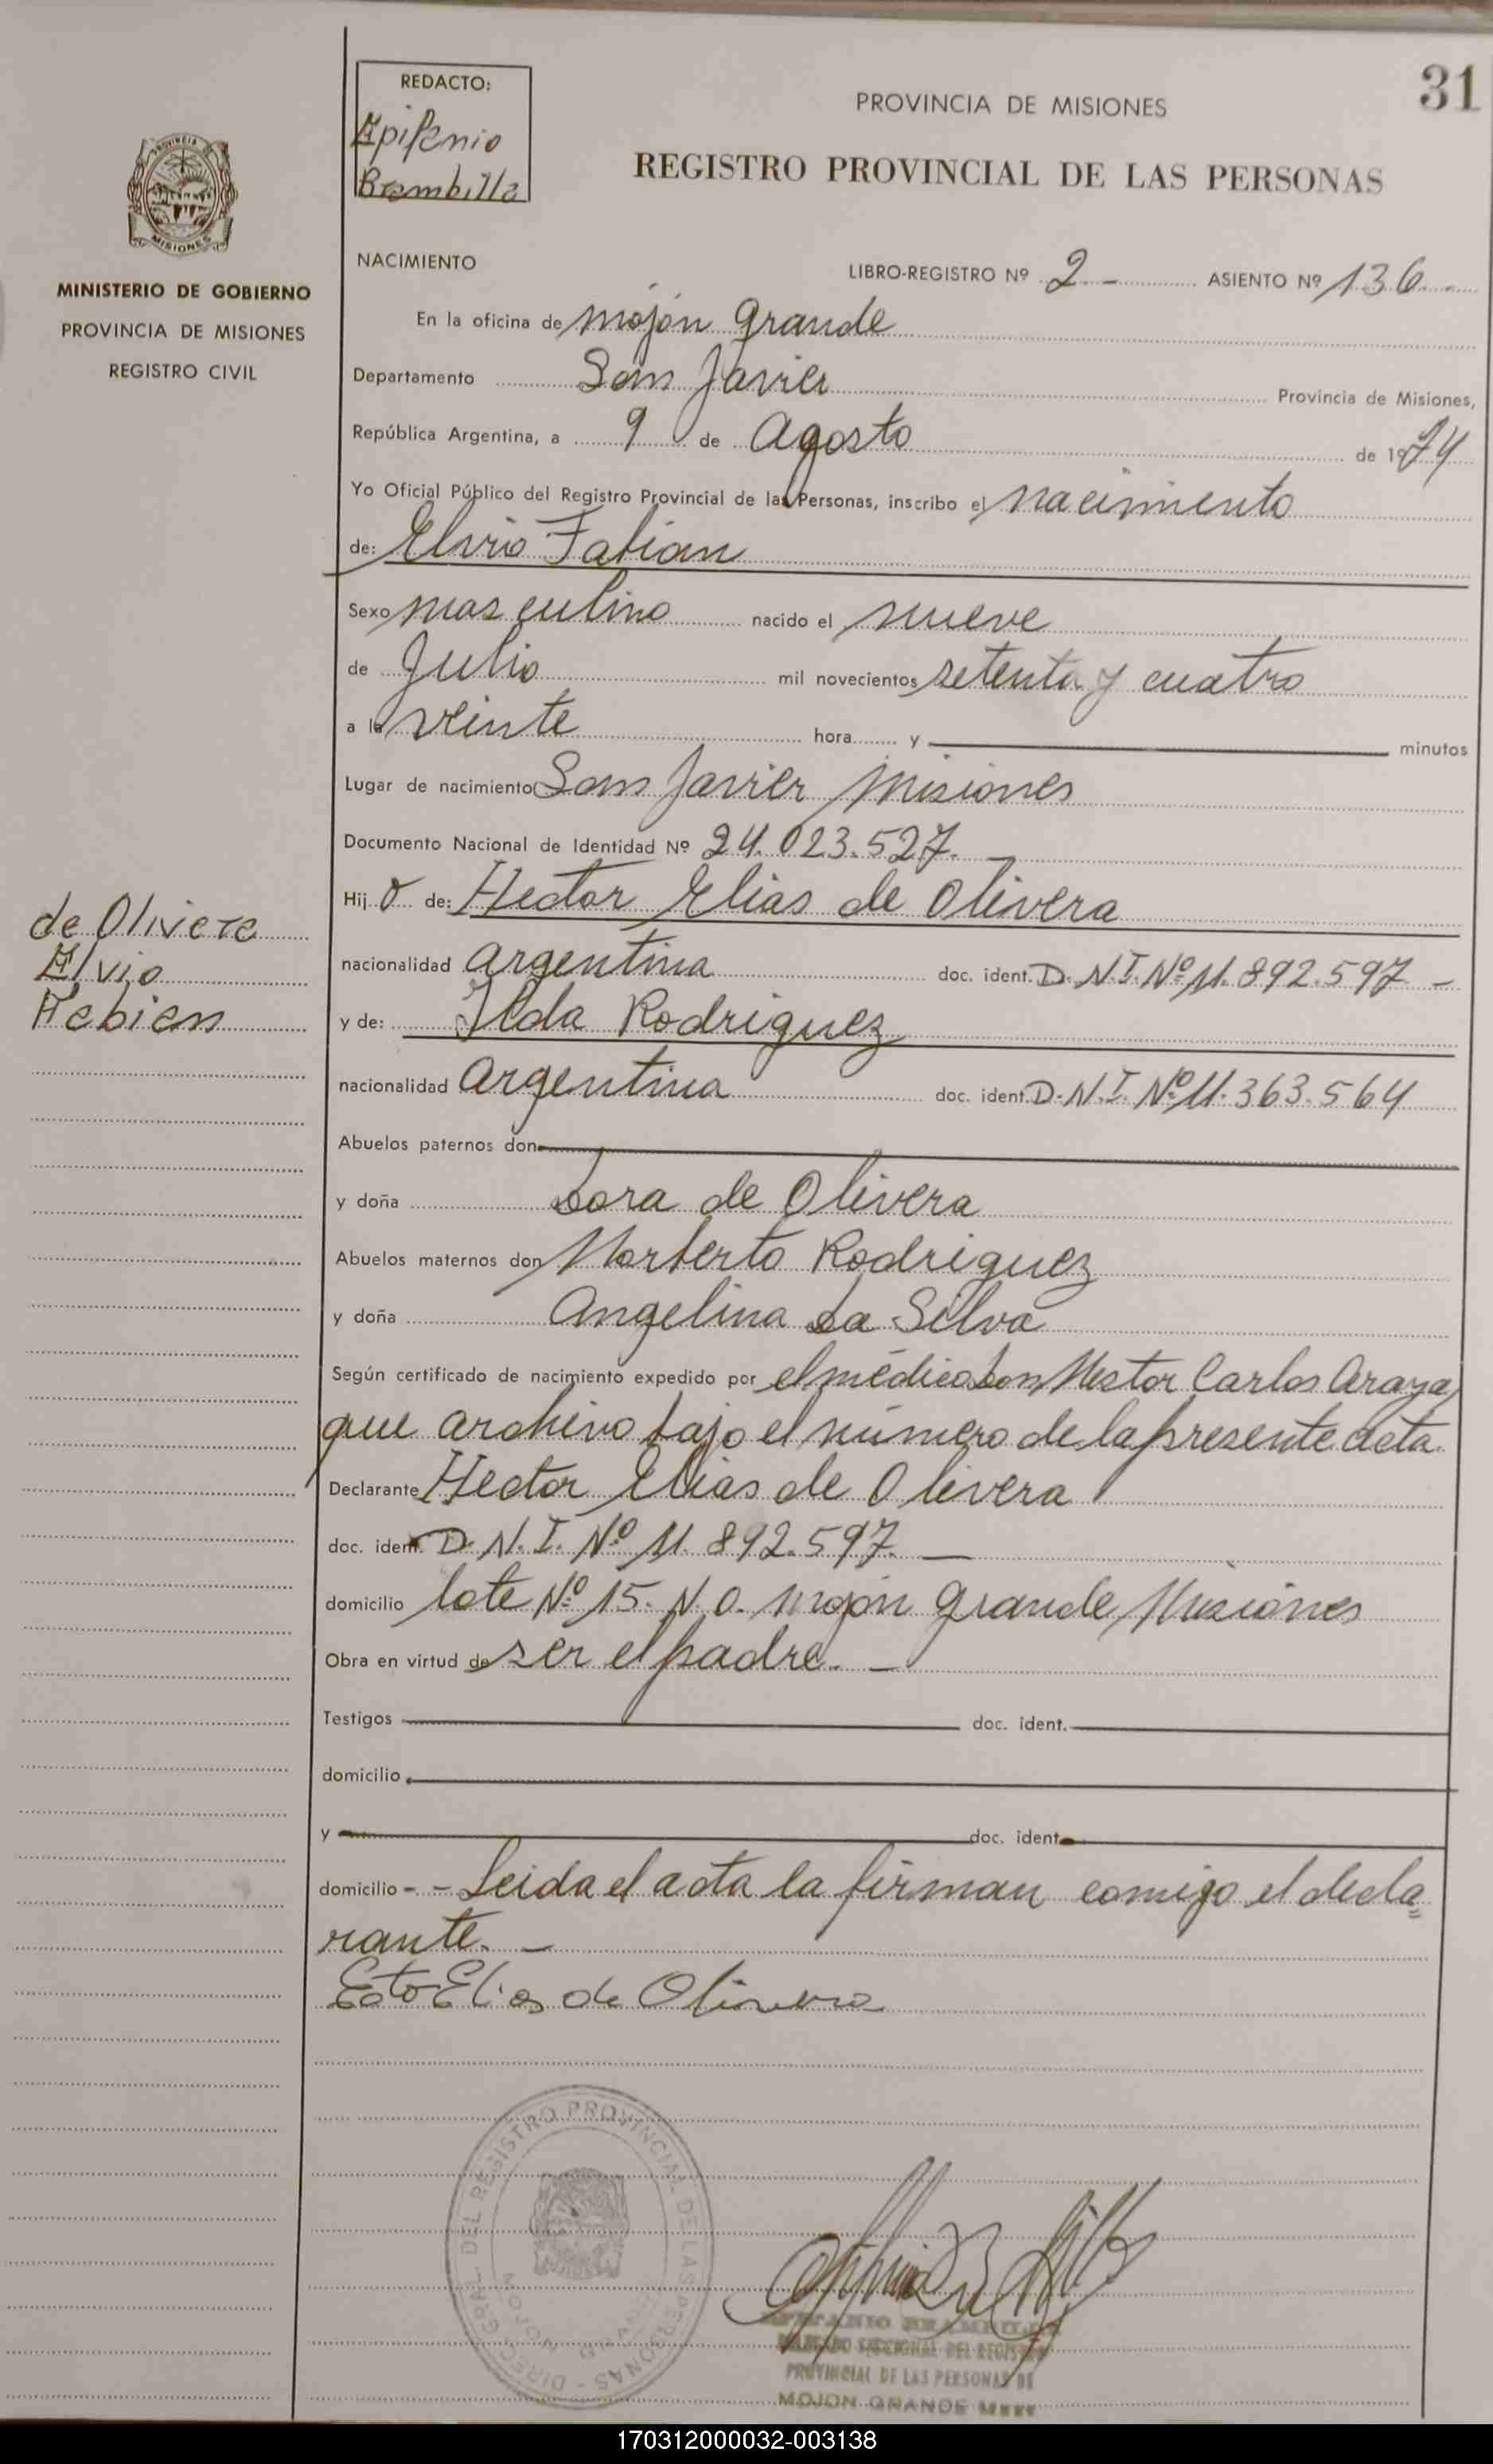 31
REDACTO:
Epifanio
Brambilla
PROVINCIA DE MISIONES
REGISTRO PROVINCIAL DE LAS PERSONAS
PROVINCIA DE
MISIONES
MINISTERIO DE GOBIERNO
PROVINCIA DE MISIONES
REGISTRO CIVIL
NACIMIENTO LIBRO-REGISTRO Nº 2 - ASIENTO Nº 136
En la oficina de mojón grande
Departamento San Javier Provincia de Misiones,
República Argentina, a 9 de Agosto de 1974
Yo Oficial Público del Registro Provincial de las Personas, inscribo el nacimiento
de: Elvio Fabian
Sexo masculino nacido el nueve
de Julio mil novecientos setenta y cuatro
a la veinte hora y minutos
Lugar de nacimiento San Javier Misiones
Documento Nacional de Identidad Nº 24.023.527.
Hijo de: Hector Elias de Olivera
nacionalidad argentina doc. ident. D.N.I. Nº 11.892.597 -
y de: Ilda Rodriguez
nacionalidad argentina doc. ident. D.N.I. Nº 11.363.564
de Olivera
Elvio
Fabian
Abuelos paternos don
y doña Lora de Olivera
Abuelos maternos don Norberto Rodriguez
y doña Angelina Da Silva
Según certificado de nacimiento expedido por el médico Don Nestor Carlos Araya
que archivo bajo el número de la presente acta.
Declarante Hector Elias de Olivera
doc. ident. D.N.I. Nº 11.892.597. -
domicilio lote Nº 15. N.O. mojón grande Misiones
Obra en virtud de ser el padre. -
Testigos doc. ident.
domicilio
y doc. ident.
domicilio - - Leida el acta la firman comigo el decla
rante. -
Ector Elias de Olivera
DIREC. GRAL. DEL REGISTRO PROVINCIAL DE LAS PERSONAS
MOJON GRANDE
EPIFANIO BRAMBILLA
DELEGADO SECCIONAL DEL REGISTRO
PROVINCIAL DE LAS PERSONAS DE
MOJON GRANDE
170312000032-003138